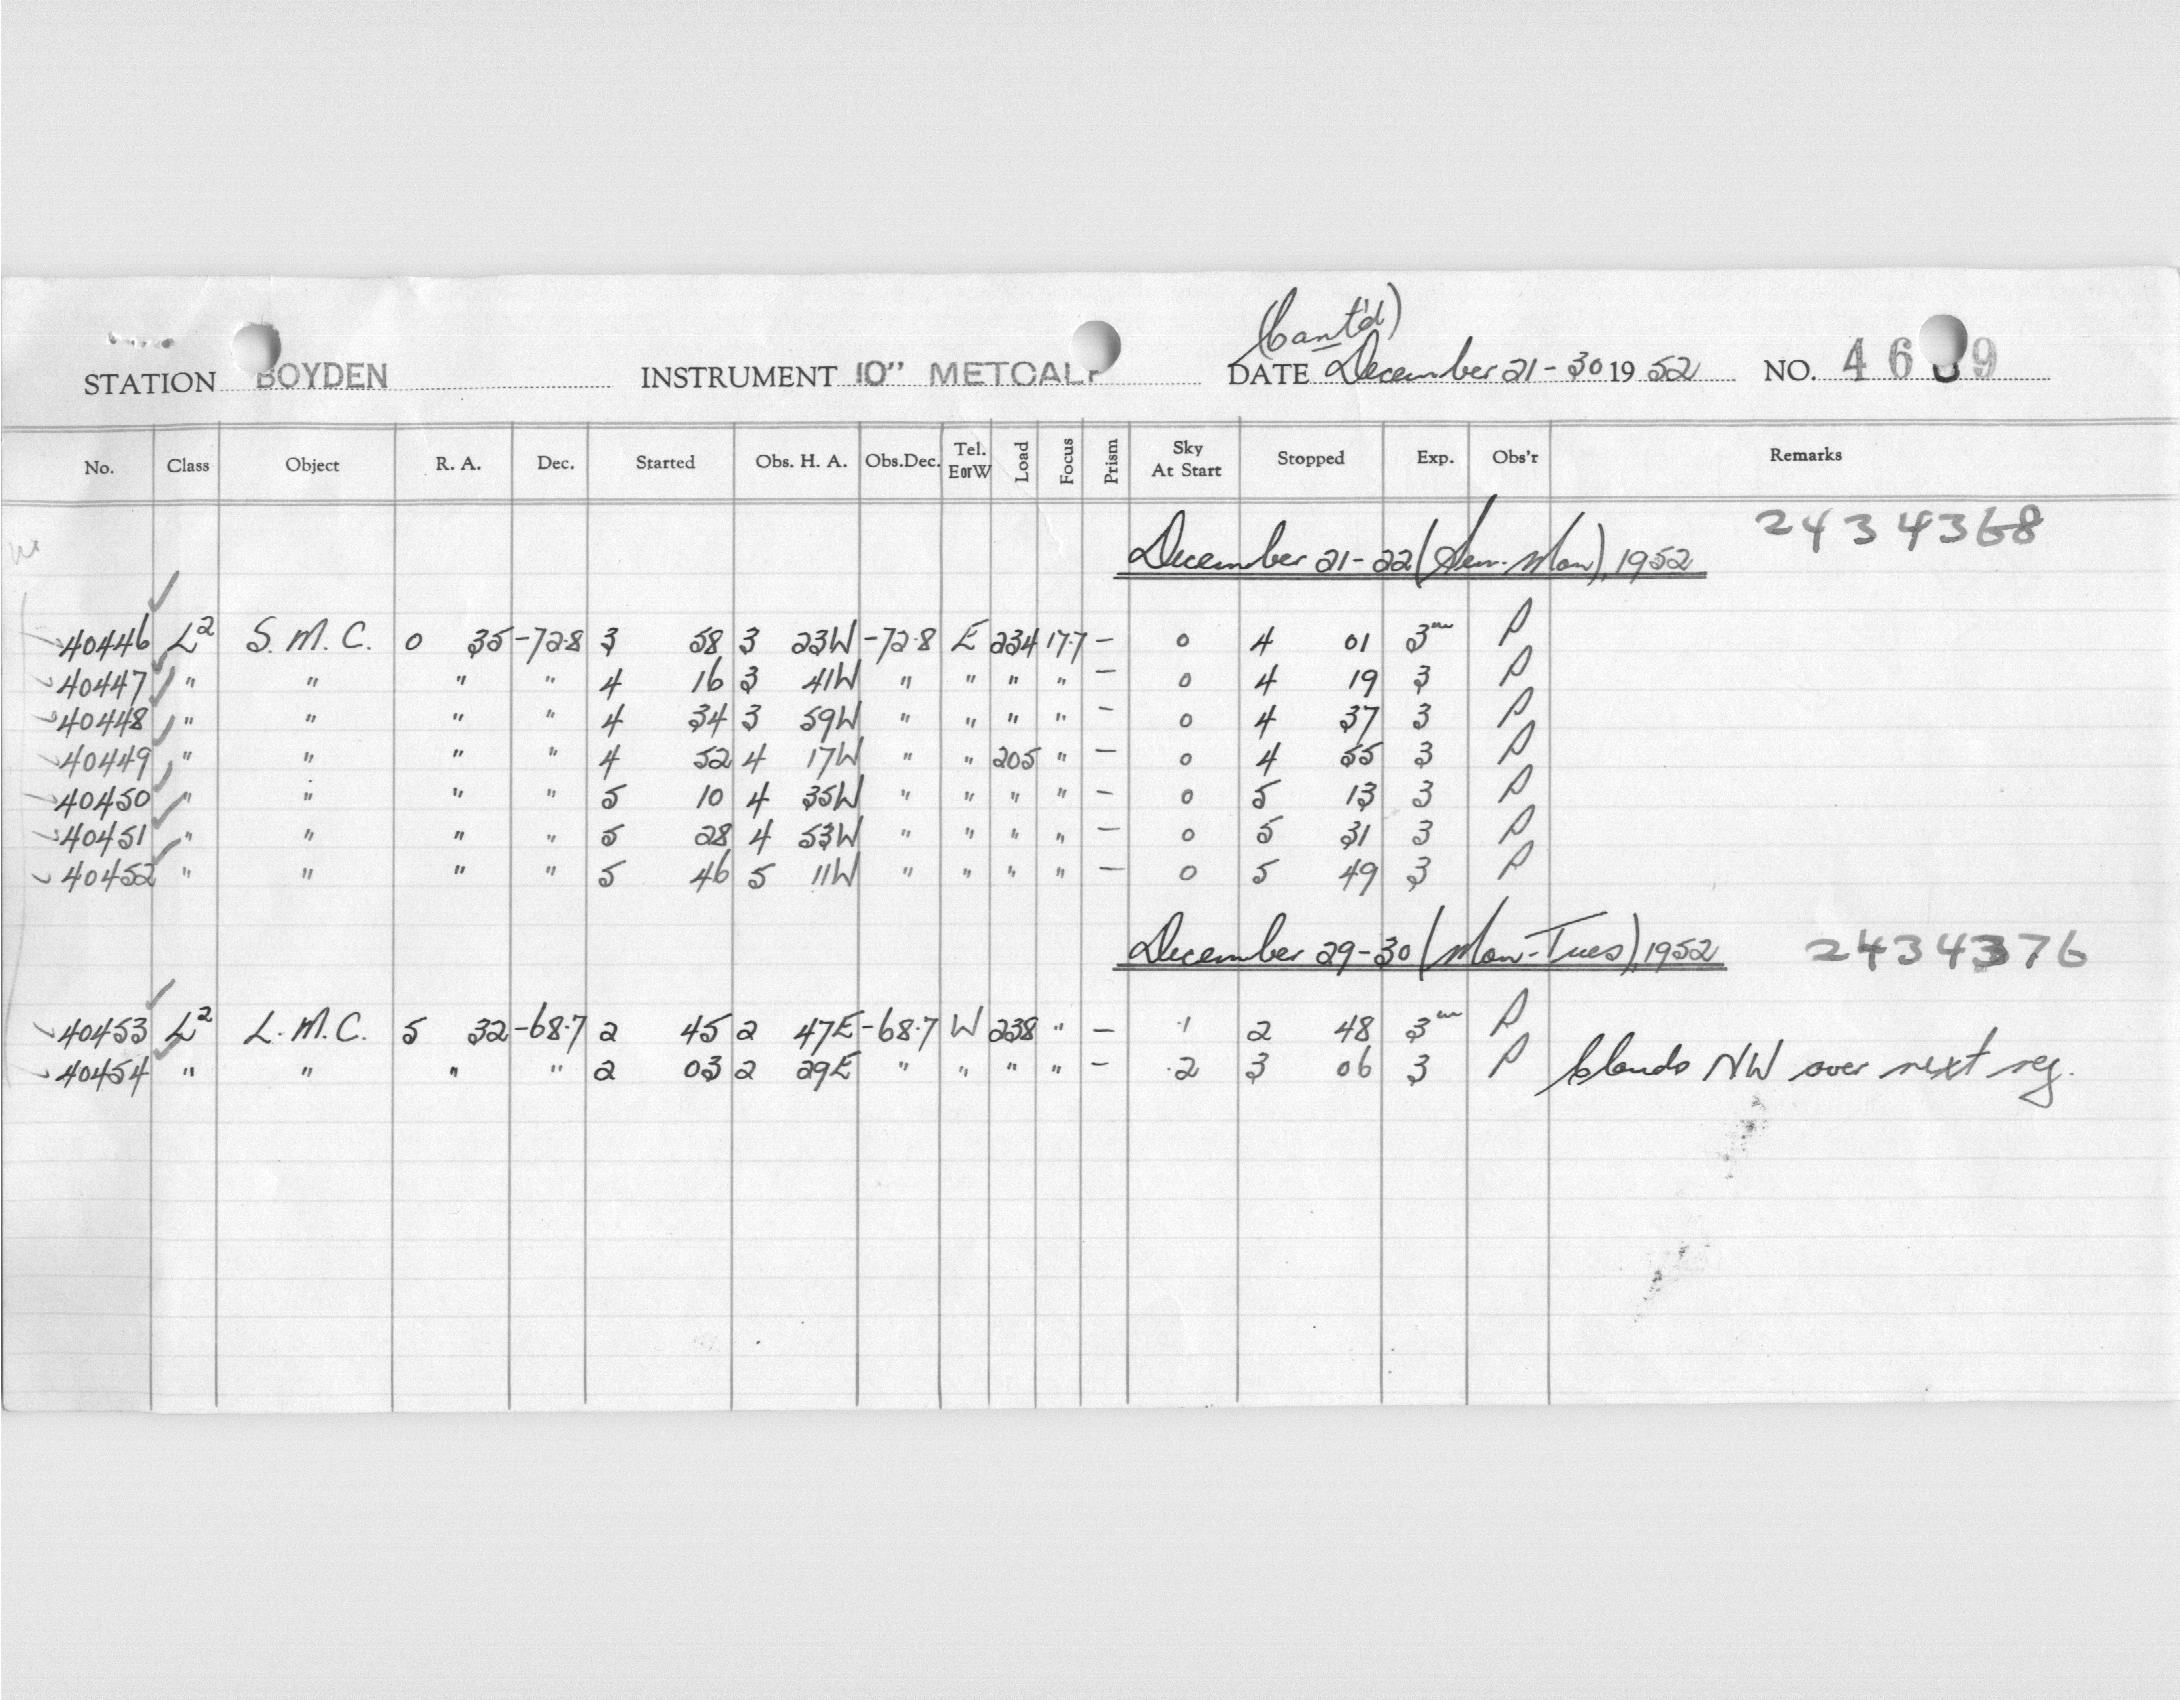 (Cont'd)
STATION BOYDEN INSTRUMENT 10" METCALF DATE December 21-30 1952 NO. 46 9
No. Class Object R. A. Dec. Started Obs. H. A. Obs.Dec. Tel. EorW Load Focus Prism Sky At Start Stopped Exp. Obs'r Remarks
December 21-22 (Sun-Mon), 1952 2434368
40446 L2 S. M. C. 0 35 -72.8 3 58 3 23W -72.8 E 234 17.7 - 0 4 01 3m P
40447 " " " " 4 16 3 41W " " " " - 0 4 19 3 P
40448 " " " " 4 34 3 59W " " " " - 0 4 37 3 P
40449 " " " " 4 52 4 17W " " 205 " - 0 4 55 3 P
40450 " " " " 5 10 4 35W " " " " - 0 5 13 3 P
40451 " " " " 5 28 4 53W " " " " - 0 5 31 3 P
40452 " " " " 5 46 5 11W " " " " - 0 5 49 3 P
December 29-30 (Mon-Tues), 1952 2434376
40453 L2 L. M. C. 5 32 -68.7 2 45 2 47E -68.7 W 238 " - .1 2 48 3m P
40454 " " " " 2 03 2 29E " " " " - .2 3 06 3 P Clouds NW over next reg.